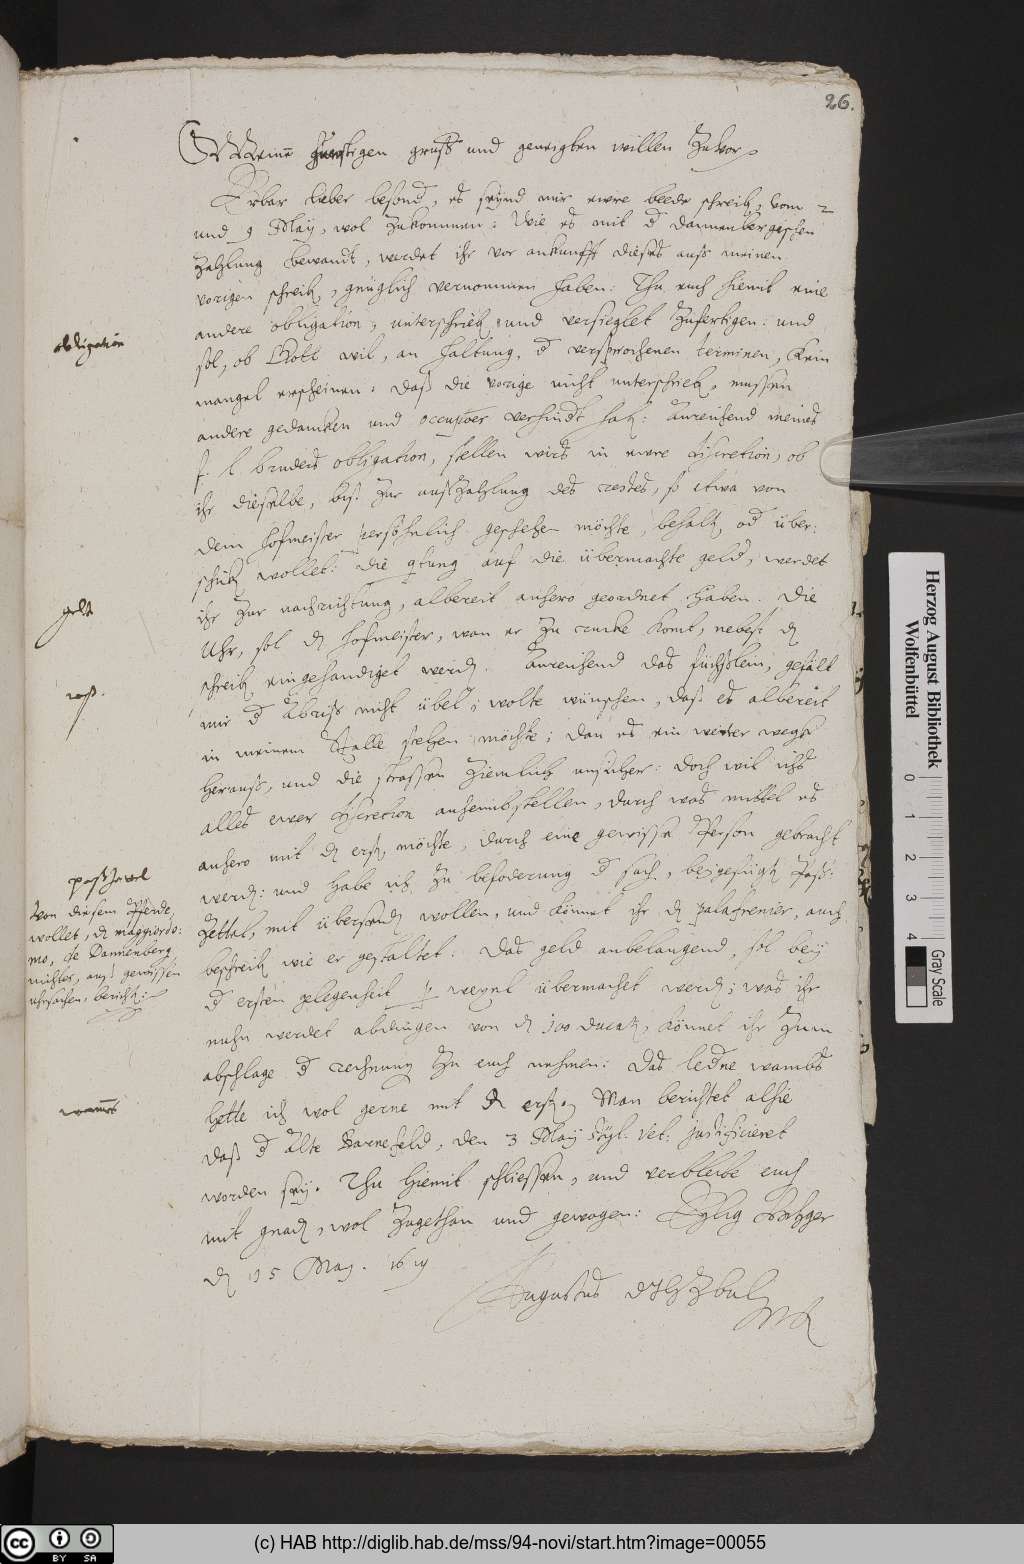 26.
Meine günstigen gruß und geneigten willen zuvor,
Erbar lieber besond, es seynd mir ewre beede schreib, vom 2
und 9 May, wol zukommen: Wie es mit d dannenbergischen
Zahlung bewandt, werdet ihr vor ankunfft dieses auß meinen
vorigen schreib, gnüglich vernommen haben: Thu euch hiemit eine
andere obligation, unterschrieb und versieglet zufertigen: und
obligation
sol, ob Gott wil, an haltung, d versprochenen terminen, kein
mangel erscheinen: daß die vorige nicht unterschrieb, müssen
andere gedancken und occupões verhindt hab: Anreichend meines
f. l. bruders obligation, stellen wirs in ewre discretion, ob
ihr dieselbe, biß zur außzahlung des restes, so etwa von
dem hofmeister persöhnlich geschehen möchte, behalt, od über:
schick wollet: die qtung auf die übermachte geld, werdet
gelt
ihr zur nachrichtung, albereit anhero geordnet haben. Die
Uhr, sol d hofmeister, wan er zu rucke komt, nebest d
schreib eingehandiget werd. Anreichend das füchslein, gefält
roß.
mir d Abriß nicht übel; wolte wünschen, daß es albereit
in meinem Stalle stehen möchte; dan es ein weiter wegk
herauß, und die strassen ziemlich unsicher: doch wil ichs
alles ewer discretion anheimbstellen, durch was mittel es
anhero mit d erst möchte, durch eine gewisse Person gebracht
werd: und habe ich zu befoderung d sach, beigefügt Paß:
paßzettel
Zettel, mit übersend wollen, und könnet ihr d palafrenier, auch
beschreib wie er gestaltet: Das geld anbelangend, sol bey
Von diesem Pferde,
wollet, d maggiordo:
mo, de Dannenberg,
nichtes, auß gewissen
uhrsachen, bericht:
d ersten gelegenheit p wexel übermachet werd; was ihr
nuhn werdet abdingen von d 100 ducat, könnet ihr zum
abschlage d rechnung zu euch nehmen: Das ledrne wambs
wammes
hette ich wol gerne mit d erst, Man berichtet alhie
daß d alte Barnefeld, den 3 May Styl: vet: justificieret
worden sey. Thu hiemit schliessen, und verbleibe euch
mit gnad, wol zugethan und gewogen: Eylig Hitzger
d 15 May. 1619
Augustus
Herzog August Bibliothek
Wolfenbüttel
0 1 2 3 4
Gray Scale
CC BY SA
(c) HAB http://diglib.hab.de/mss/94-novi/start.htm?image=00055